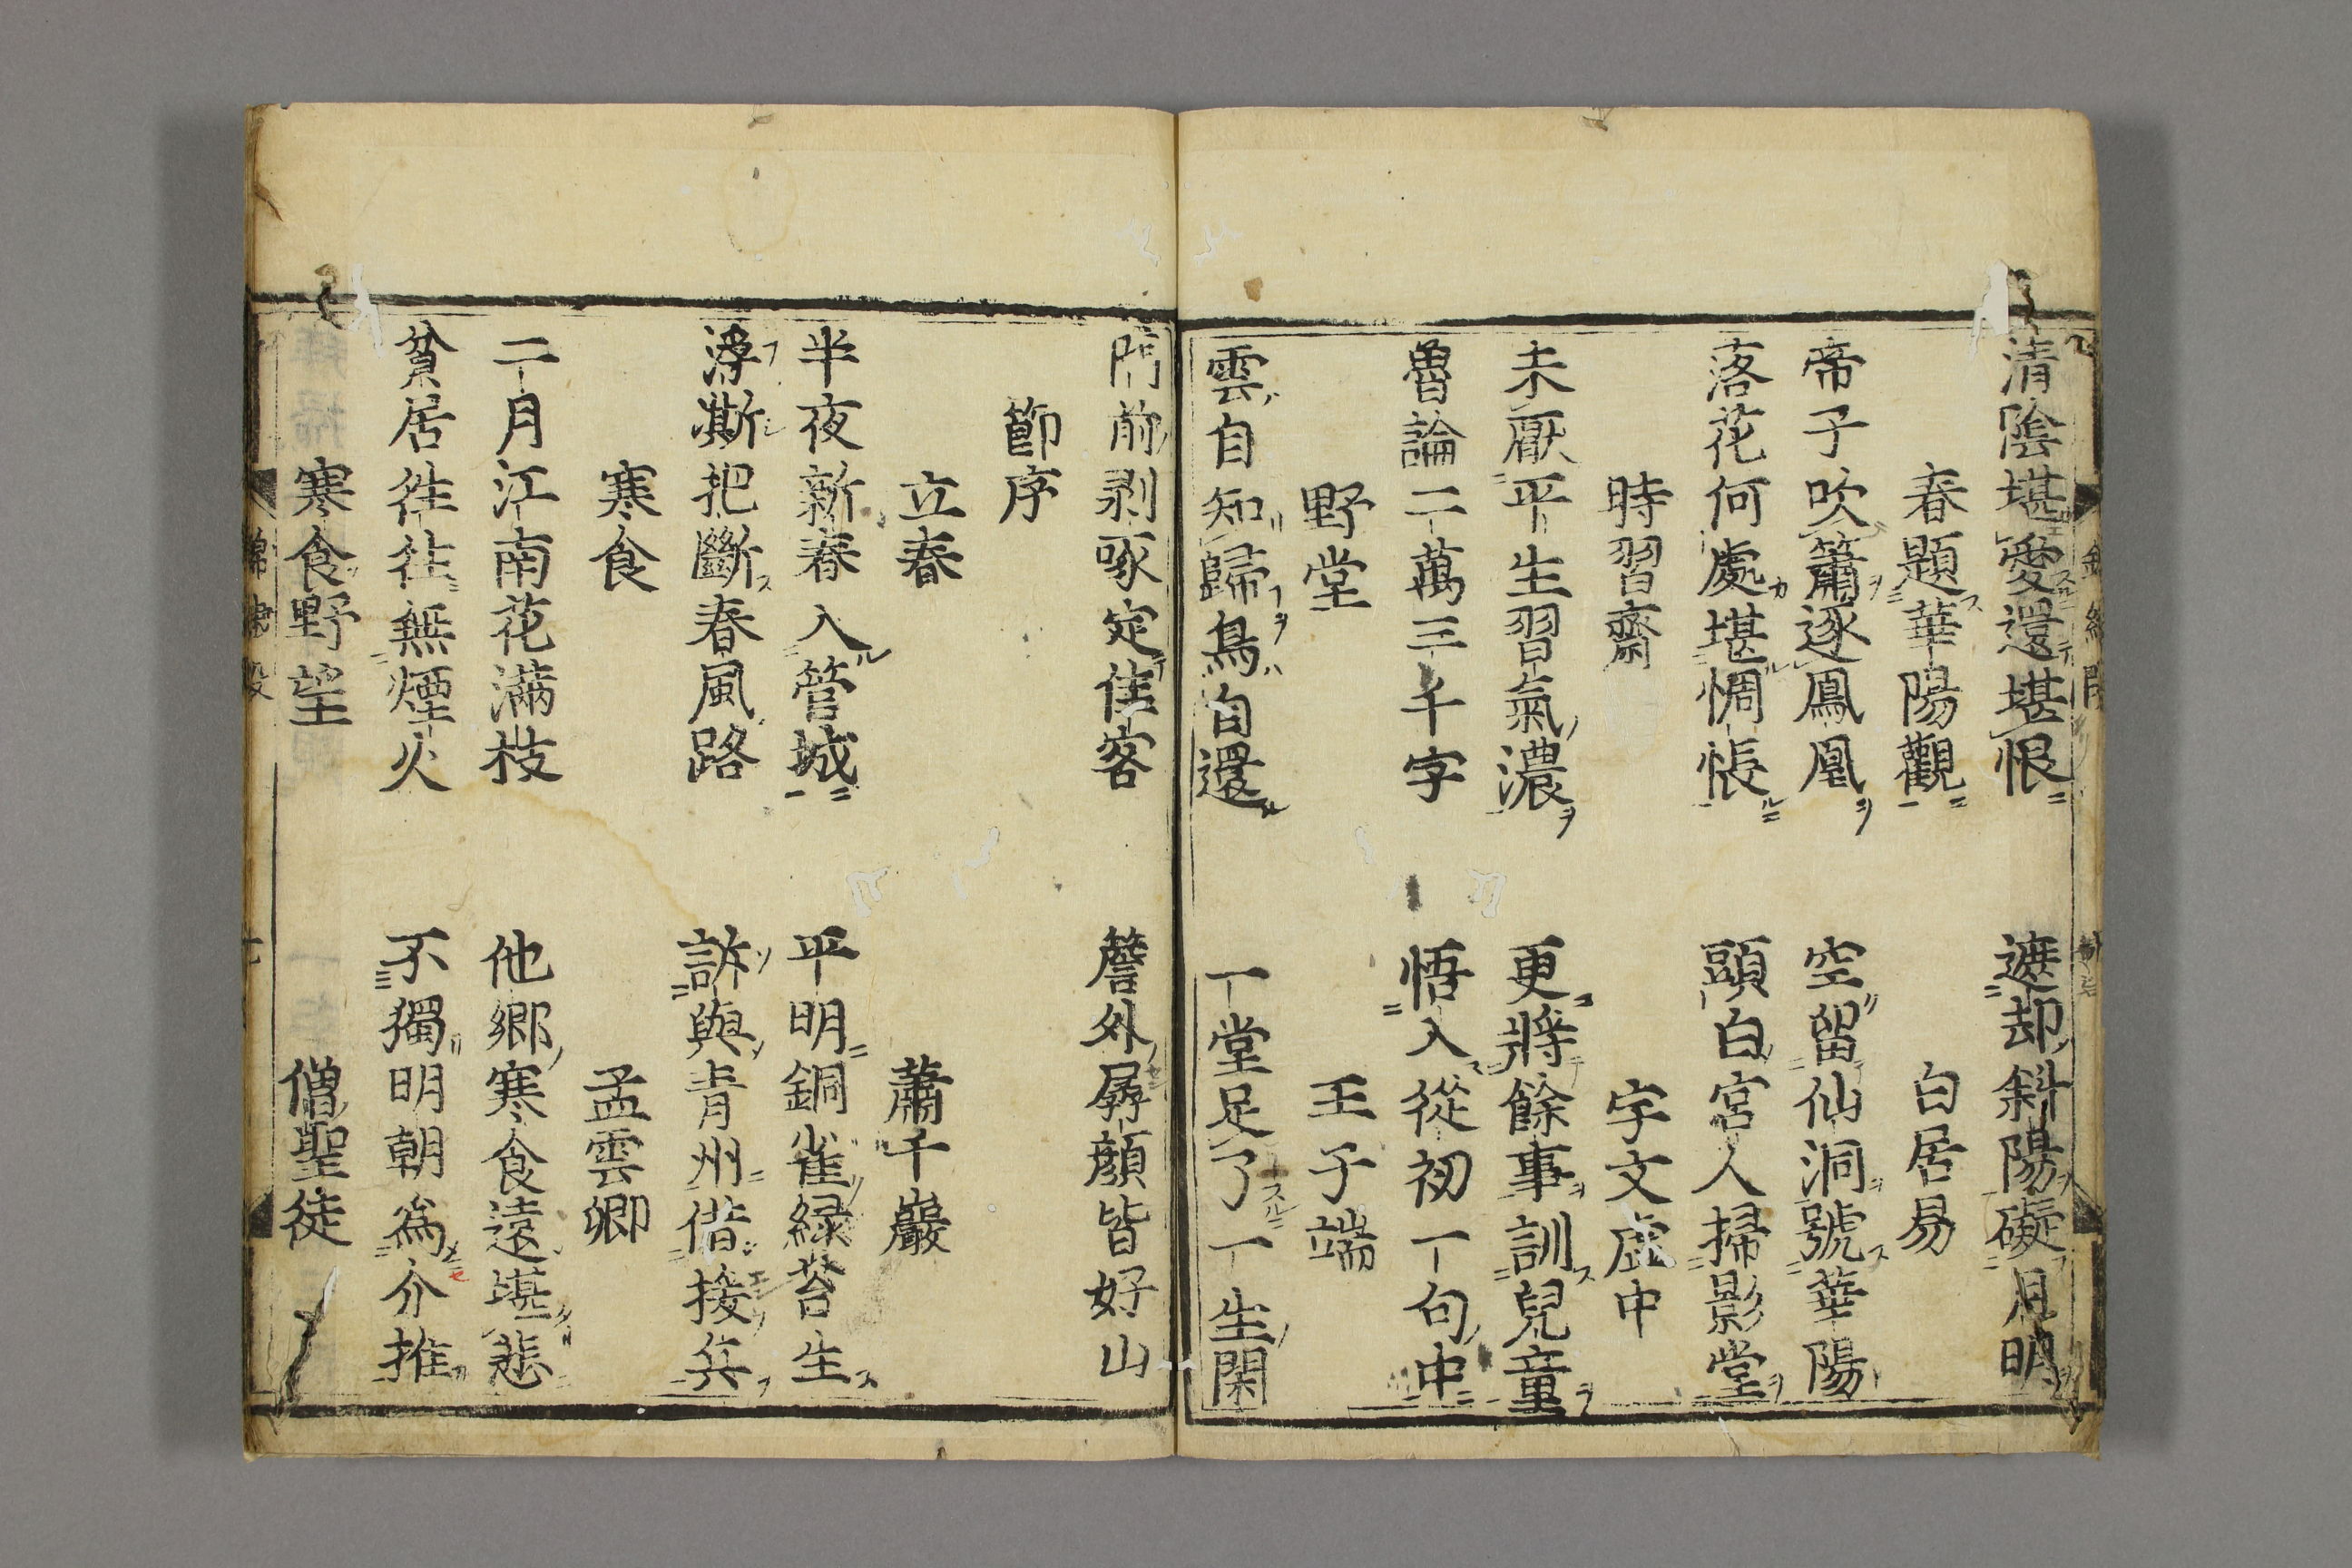 清陰堪愛還堪恨　遮却斜陽礙月明
春題華陽觀　白居易
帝子吹簫逐鳳凰　空留仙洞號華陽
落花何處堪惆悵　頭白宮人掃影堂
時習齋　宇文虛中
未厭平生習氣濃　更將餘事訓兒童
魯論二萬三千字　悟入從初一句中
野堂　王子端
雲自知歸鳥自還　一堂足了一生閑
門前剥啄定佳客　簷外孱顔皆好山
節序
立春　蕭千巖
半夜新春入管城　平明銅雀緑苔生
浮澌把斷春風路　訴與青州借援兵
寒食　孟雲卿
二月江南花滿枝　他鄉寒食遠堪悲
貧居往往無煙火　不獨明朝為介推
寒食野望　僧聖徒